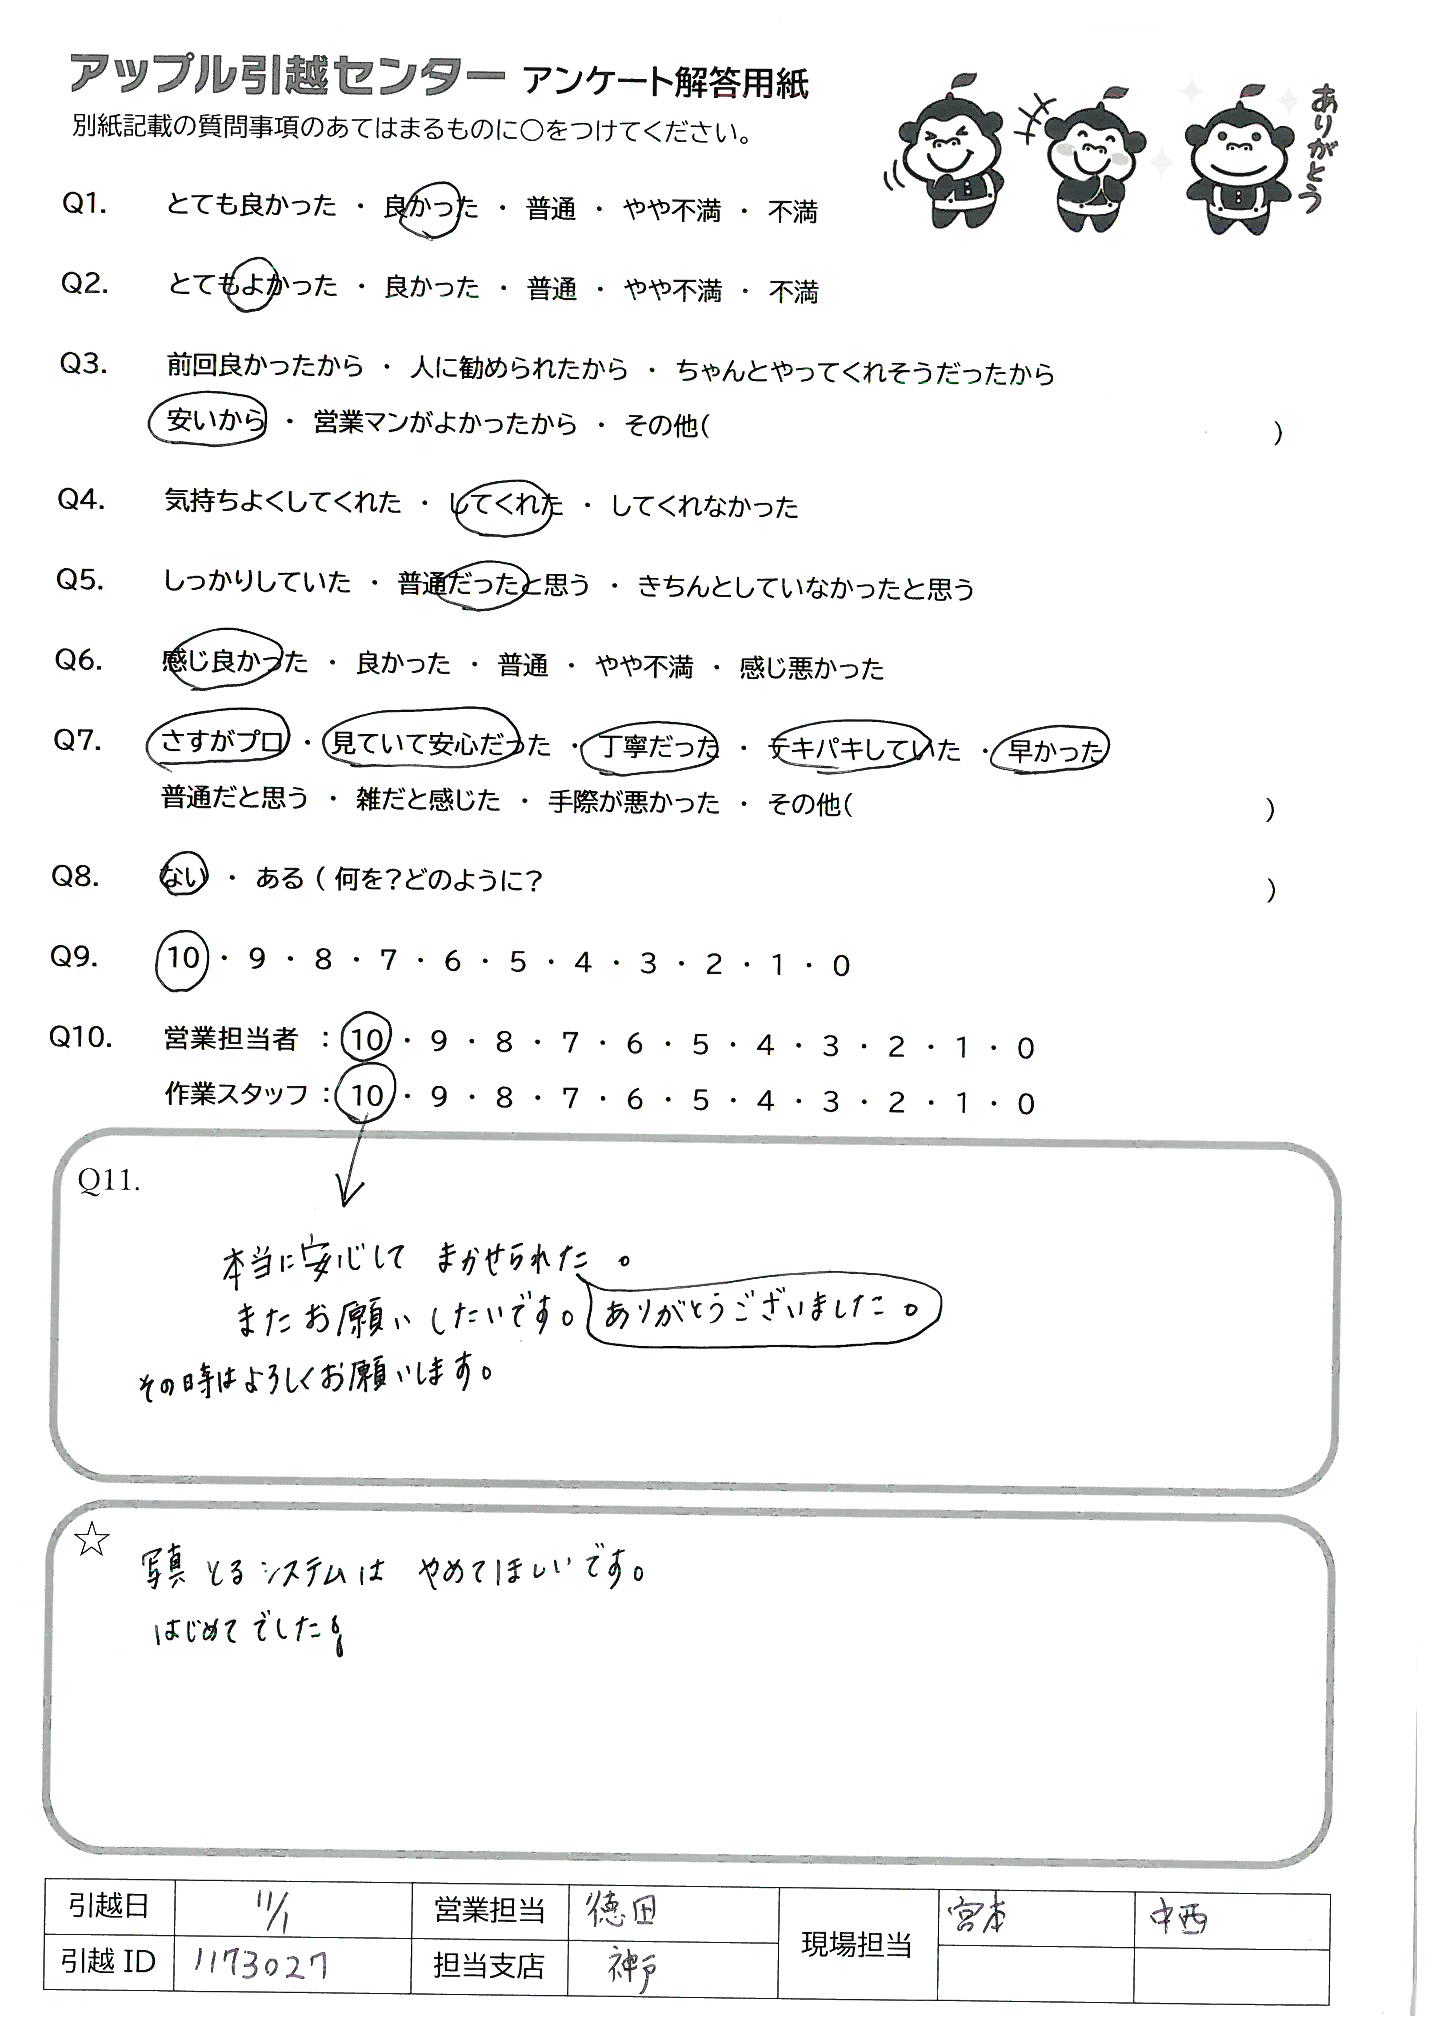 アップル引越センター アンケート解答用紙
別紙記載の質問事項のあてはまるものに〇をつけてください。
ありがとう
Q1. とても良かった ・ 良かった ・ 普通 ・ やや不満 ・ 不満
Q2. とてもよかった ・ 良かった ・ 普通 ・ やや不満 ・ 不満
Q3. 前回良かったから ・ 人に勧められたから ・ ちゃんとやってくれそうだったから
安いから ・ 営業マンがよかったから ・ その他( )
Q4. 気持ちよくしてくれた ・ してくれた ・ してくれなかった
Q5. しっかりしていた ・ 普通だったと思う ・ きちんとしていなかったと思う
Q6. 感じ良かった ・ 良かった ・ 普通 ・ やや不満 ・ 感じ悪かった
Q7. さすがプロ ・ 見ていて安心だった ・ 丁寧だった ・ テキパキしていた ・ 早かった
普通だと思う ・ 雑だと感じた ・ 手際が悪かった ・ その他( )
Q8. ない ・ ある ( 何を?どのように? )
Q9. 10 ・ 9 ・ 8 ・ 7 ・ 6 ・ 5 ・ 4 ・ 3 ・ 2 ・ 1 ・ 0
Q10. 営業担当者 : 10 ・ 9 ・ 8 ・ 7 ・ 6 ・ 5 ・ 4 ・ 3 ・ 2 ・ 1 ・ 0
作業スタッフ : 10 ・ 9 ・ 8 ・ 7 ・ 6 ・ 5 ・ 4 ・ 3 ・ 2 ・ 1 ・ 0
Q11.
本当に安心して まかせられた。
またお願いしたいです。ありがとうございました。
その時はよろしくお願いします。
☆
写真とるシステムは やめてほしいです。
はじめてでした。
引越日 11/1 営業担当 徳田 現場担当 宮本 中西
引越 ID 1173027 担当支店 神戸